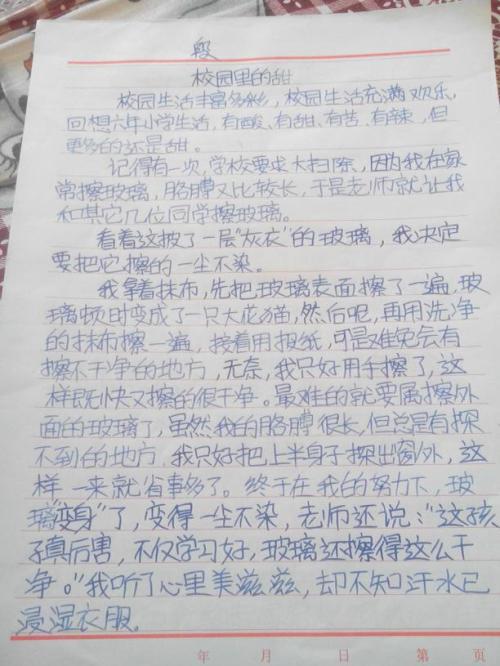 般
校园里的甜
校园生活丰富多彩，校园生活充满欢乐，
回想六年小学生活，有酸、有甜、有苦、有辣，但
更多的还是甜。
记得有一次，学校要求大扫除，因为我在家
常擦玻璃，胳膊又比较长，于是老师就让我
和其它几位同学擦玻璃。
看着这披了一层“灰衣”的玻璃，我决定
要把它擦的一尘不染。
我拿着抹布，先把玻璃表面擦了一遍，玻
璃顿时变成了一只大花猫，然后呢，再用洗净
的抹布擦一遍，接着用报纸，可是难免会有
擦不干净的地方，无奈，我只好用手擦了，这
样既快又擦的很干净。最难的就要属擦外
面的玻璃了，虽然我的胳膊很长，但总是有探
不到的地方，我只好把上半身子探出窗外，这
样一来就省事多了。终于在我的努力下，玻
璃“变身”了，变得一尘不染，老师还说：“这孩
子真厉害，不仅学习好，玻璃还擦得这么干
净。”我听了心里美滋滋，却不知汗水已
浸湿衣服。
年 月 日 第 页